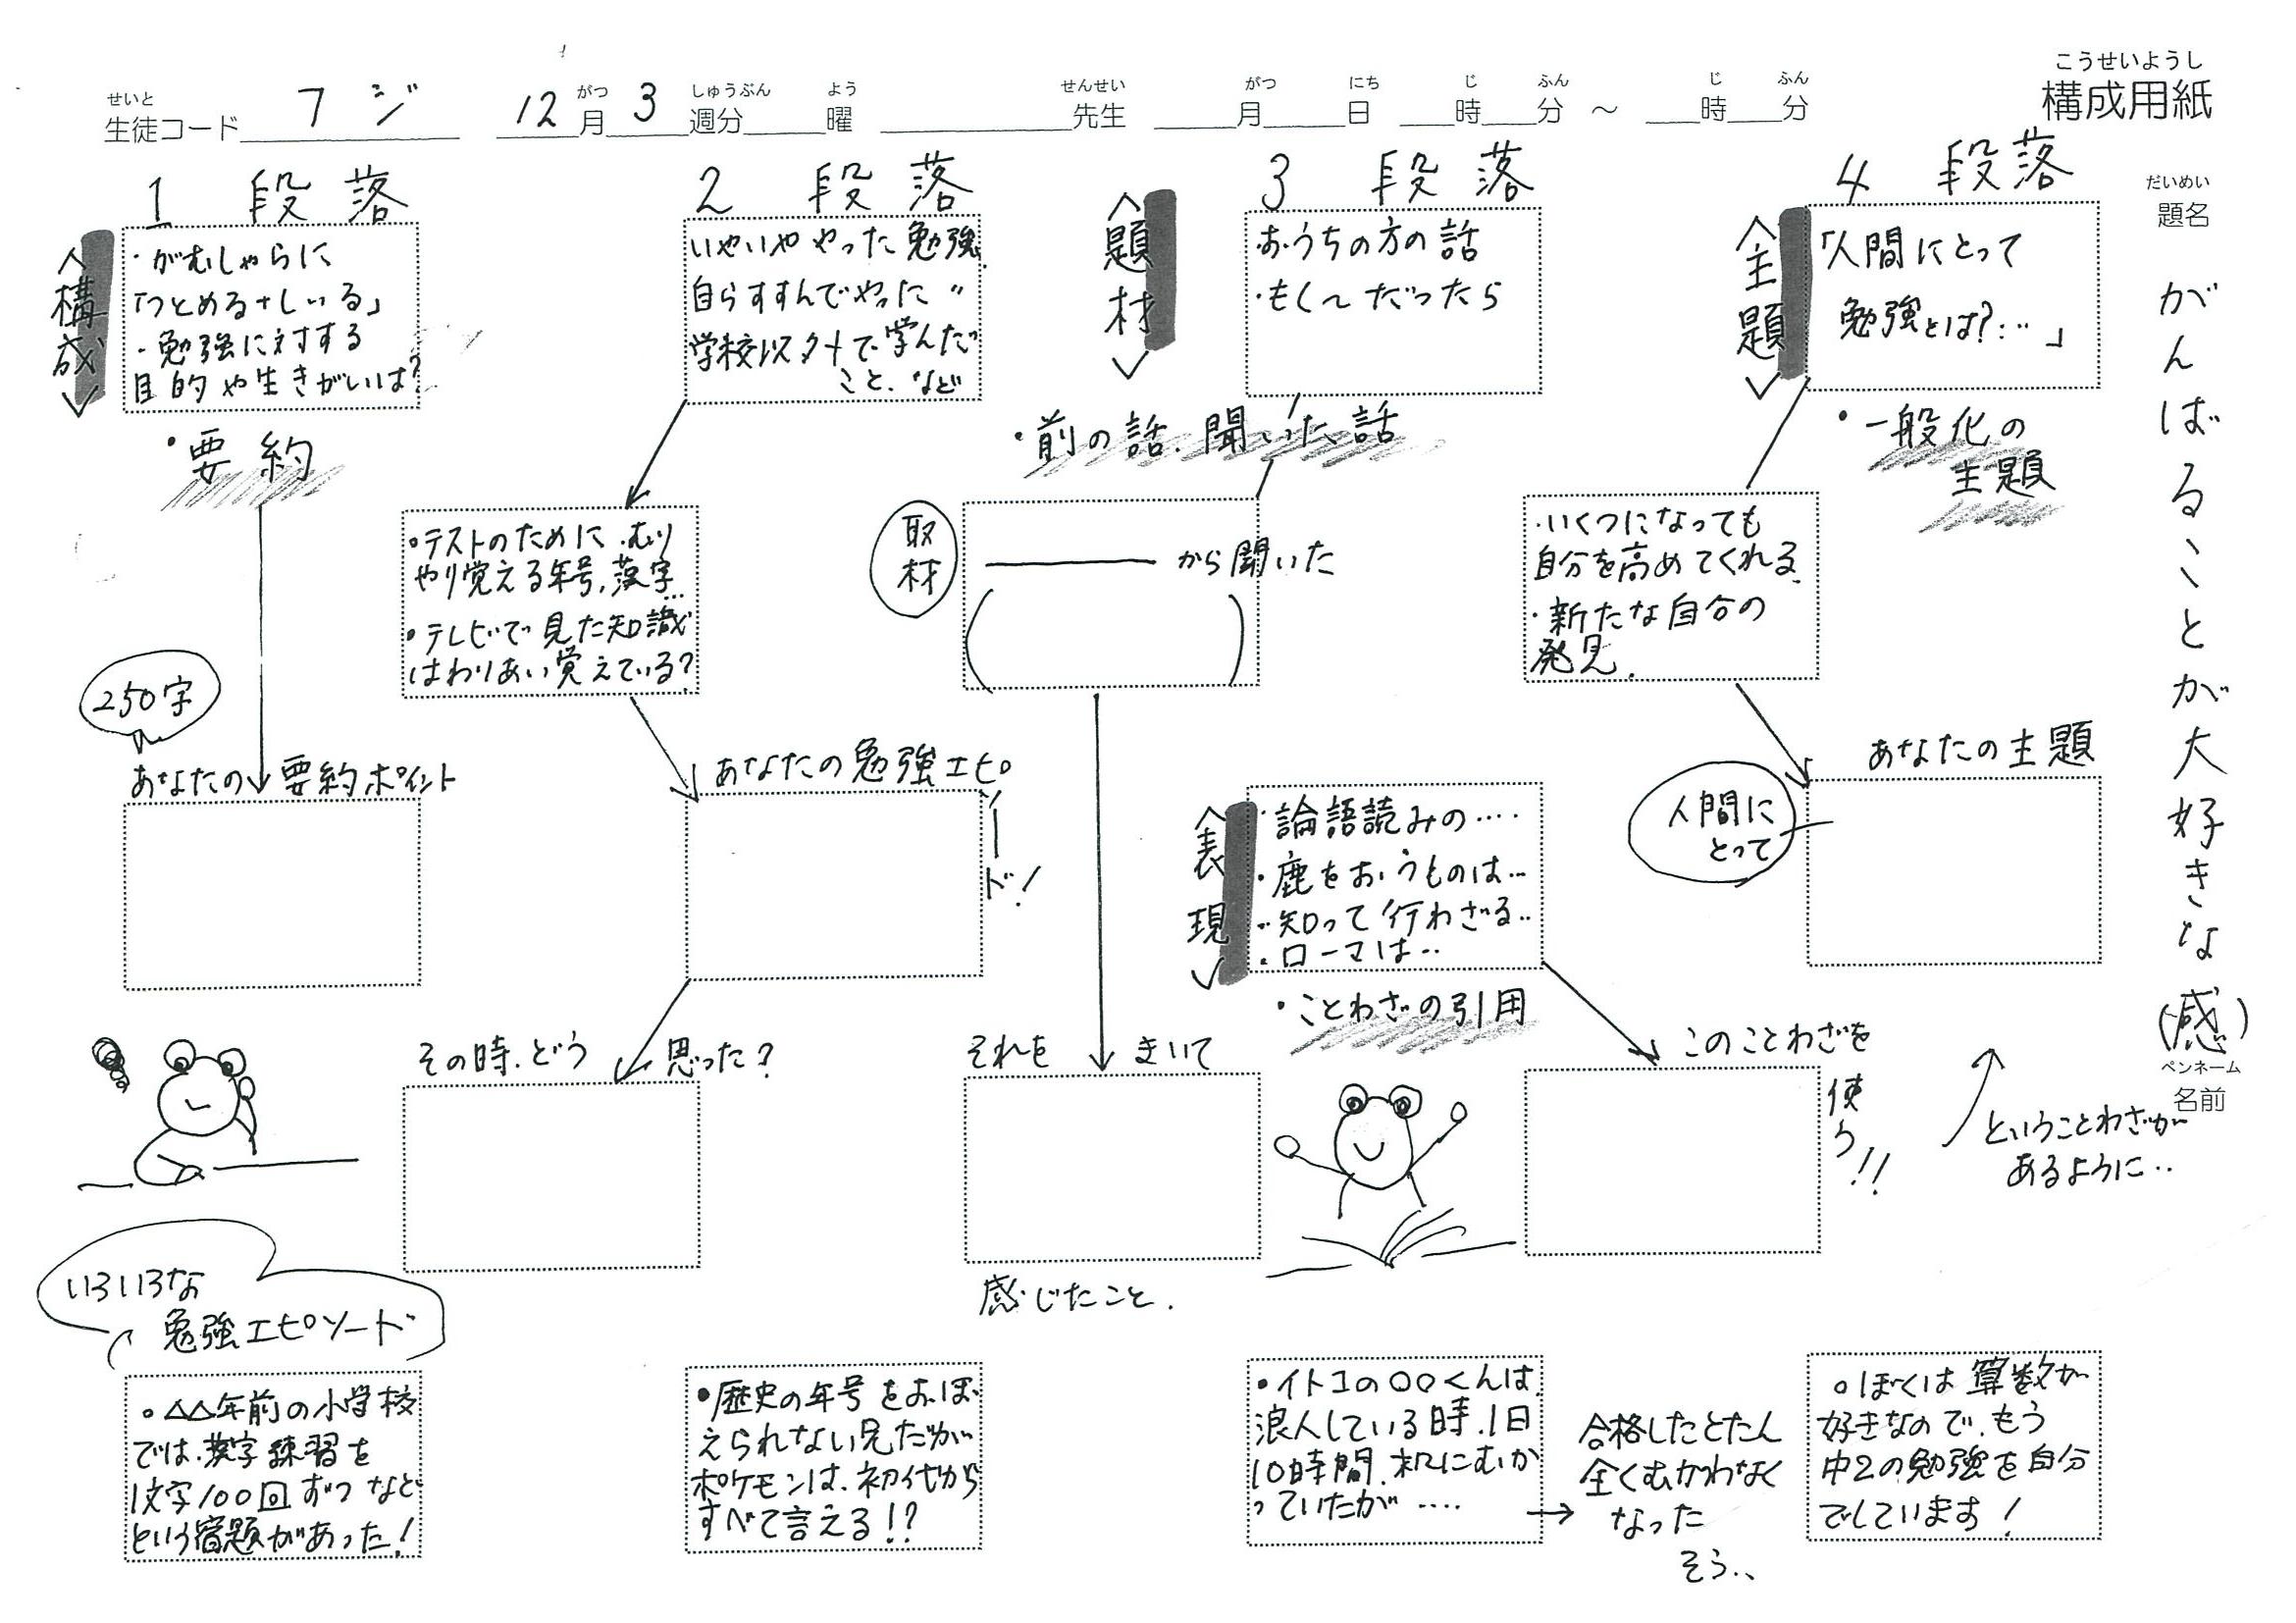 こうせいようし
構成用紙
せいと
生徒コード フジ 12月3週分 曜 先生 月 日 時 分 ～ 時 分
がつ しゅうぶん よう せんせい がつ にち じ ふん じ ふん
だいめい
題名
がんばることが大好きな(感)
ペンネーム
名前
1 段落
<構成>
・がむしゃらに
「つとめる+しいる」
・勉強に対する
目的や生きがいは?
・要約
250字
あなたの要約ポイント
2 段落
いやいややった勉強
自らすすんでやった〃
学校以外で学んだ
こと、など
・テストのために、むり
やり覚える年号、漢字…
・テレビで見た知識
はわりあい覚えている?
あなたの勉強エピソード!
その時、どう思った?
3 段落
<題材>
おうちの方の話
・もし〜だったら
・前の話、聞いた話
取材
から聞いた
( )
それをきいて
感じたこと.
<表現>
・論語読みの….
・鹿をおうものは…
・知って行わざる..
・ローマは..
・ことわざの引用
このことわざを使う!!
4 段落
<主題>
「人間にとって
勉強とは?…」
・一般化の
主題
・いくつになっても
自分を高めてくれる.
・新たな自分の
発見.
あなたの主題
人間に
とって
ということわざが
あるように..
いろいろな
勉強エピソード
。△△年前の小学校
では、漢字練習を
1文字100回ずつなど
という宿題があった!
・歴史の年号をおぼ
えられない兄だが
ポケモンは、初代から
すべて言える!?
・イトコの○○くんは
浪人している時、1日
10時間、机にむか
っていたが….
合格したとたん
全くむかわなく
なった
そう..
。ぼくは算数が
好きなので、もう
中2の勉強を自分
でしています!